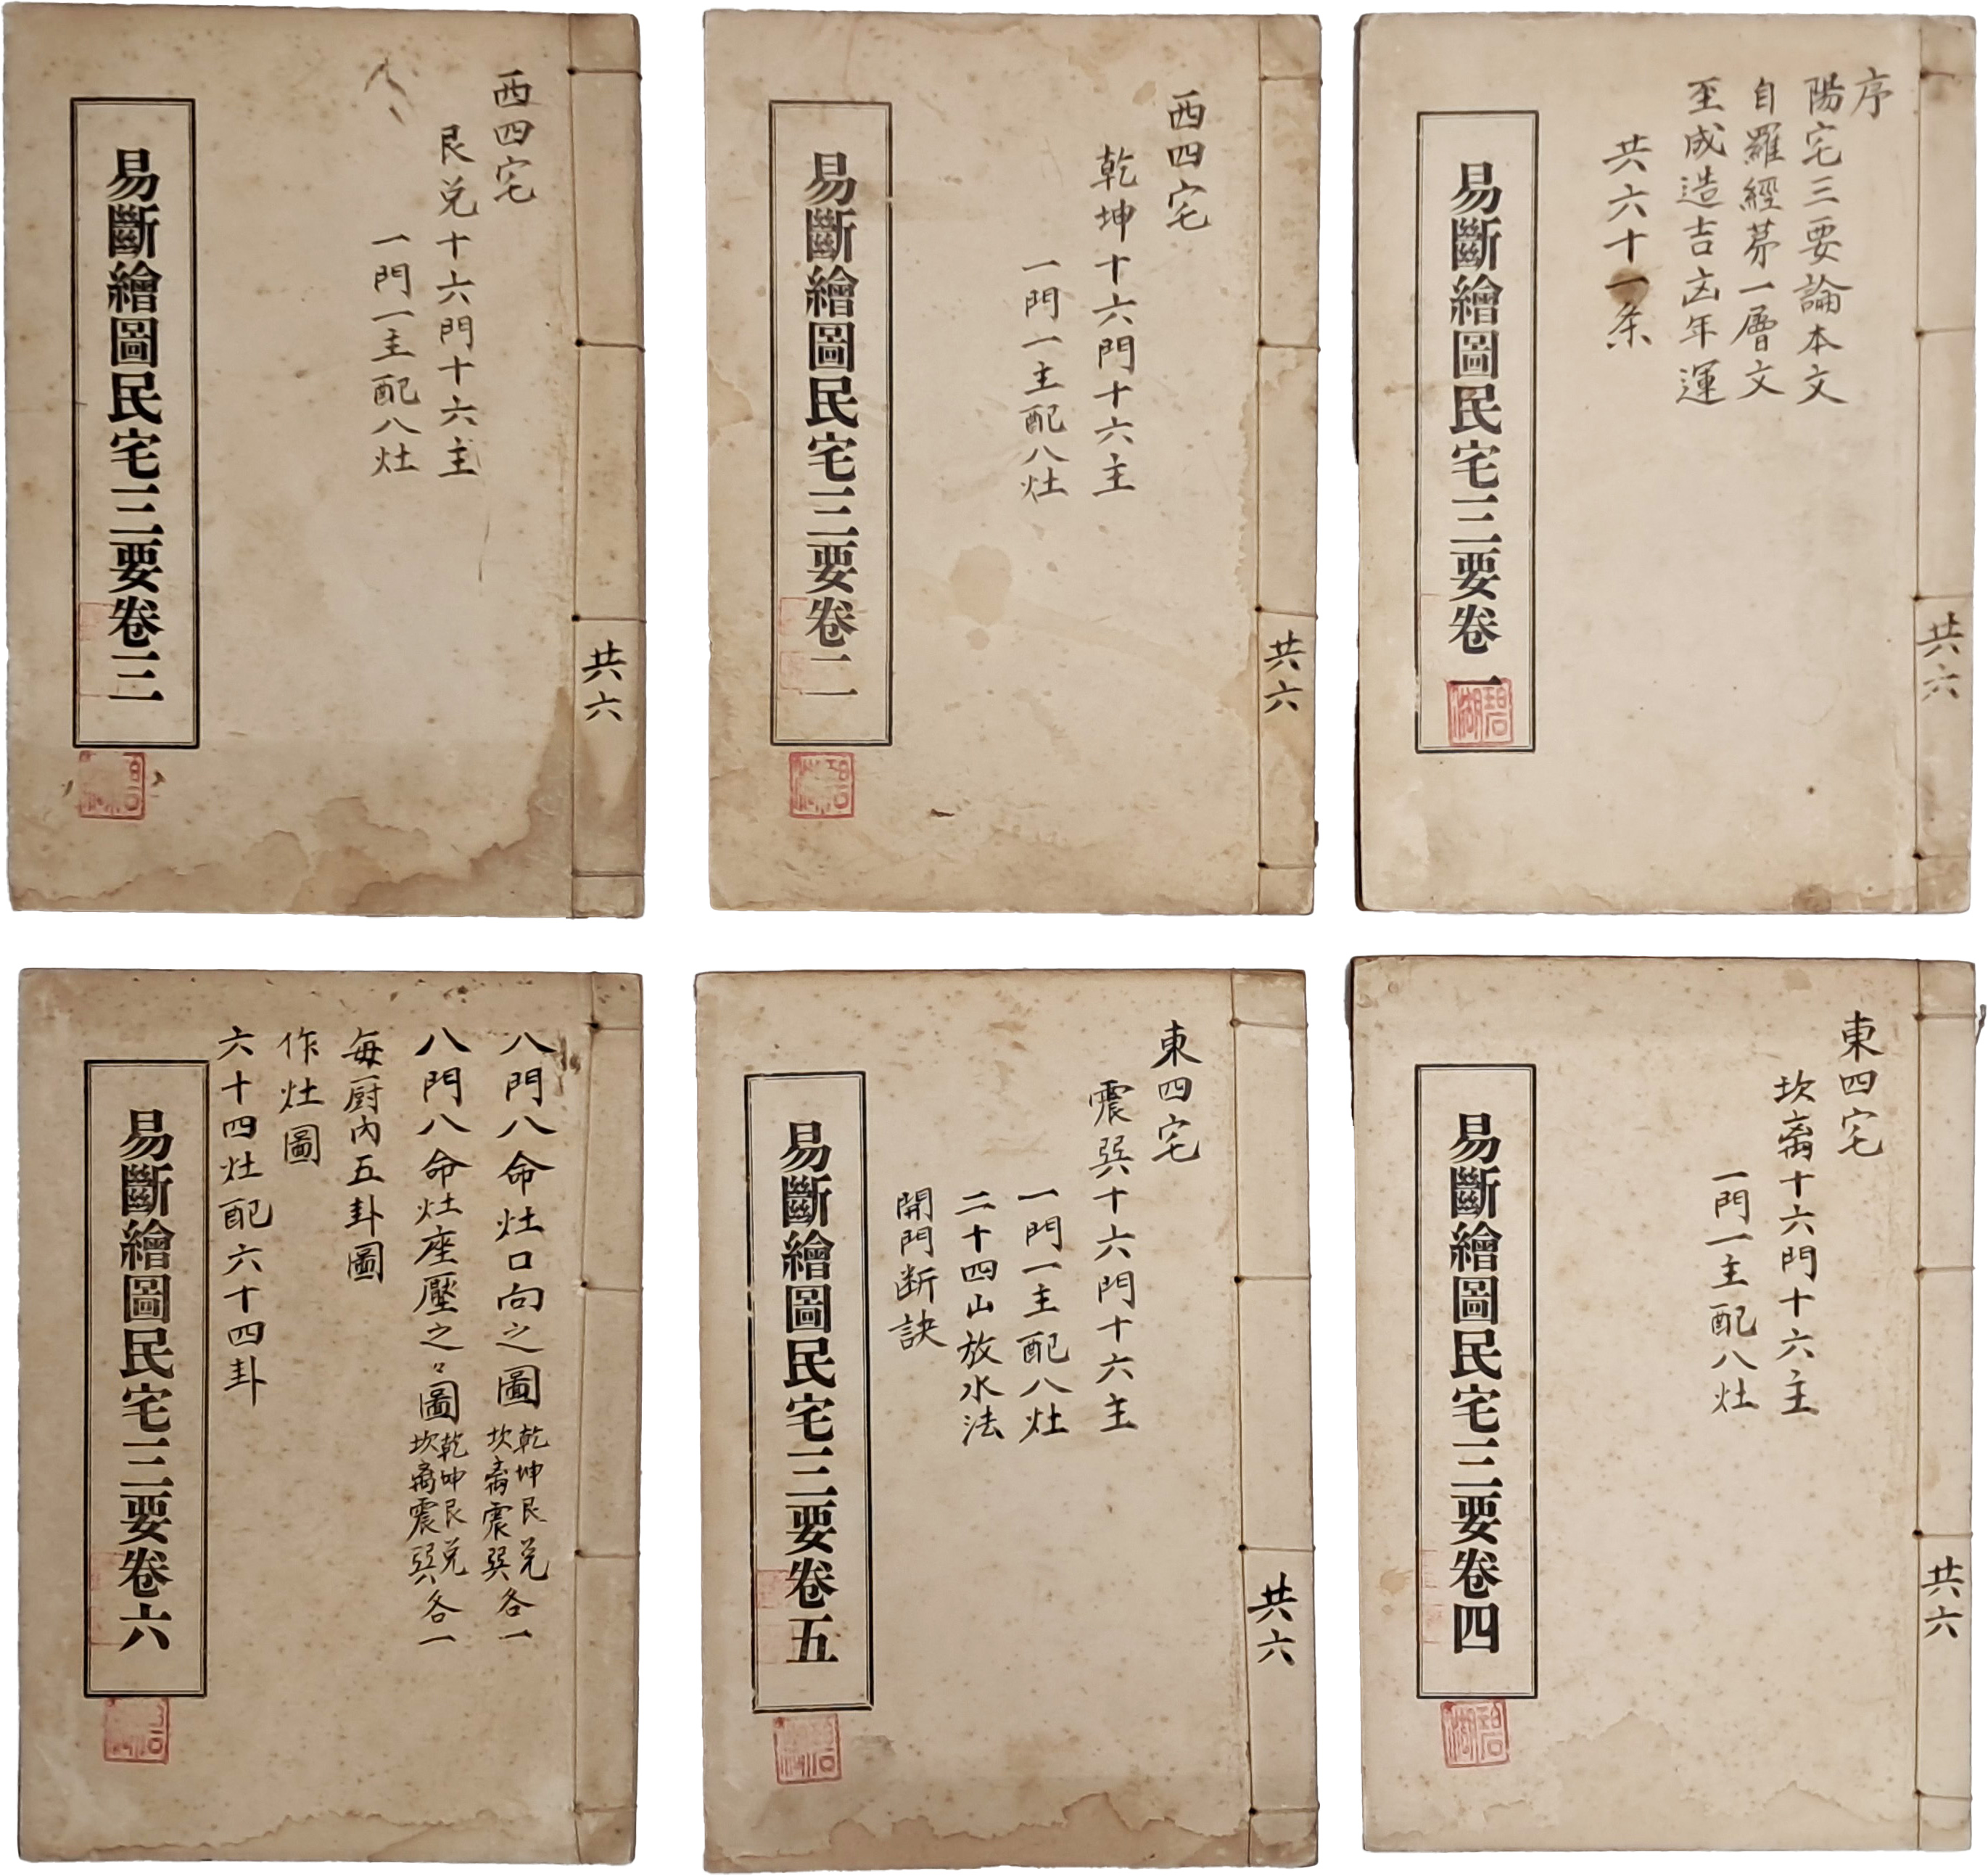 序
陽宅三要論本文
自羅經苐一層文
至成造吉凶年運
共六十一条
易斷繪圖民宅三要卷一
碧湖
共六
西四宅
乾坤十六門十六主
一門一主配八灶
易斷繪圖民宅三要卷二
共六
西四宅
艮兑十六門十六主
一門一主配八灶
易斷繪圖民宅三要卷三
共六
東四宅
坎离十六門十六主
一門一主配八灶
易斷繪圖民宅三要卷四
碧湖
共六
東四宅
震巽十六門十六主
一門一主配八灶
二十四山放水法
開門断訣
易斷繪圖民宅三要卷五
共六
八門八命灶口向之圖
乾坤艮兑
坎离震巽各一
八門八命灶座壓之圖
乾坤艮兑
坎离震巽各一
每厨内五卦圖
作灶圖
六十四灶配六十四卦
易斷繪圖民宅三要卷六